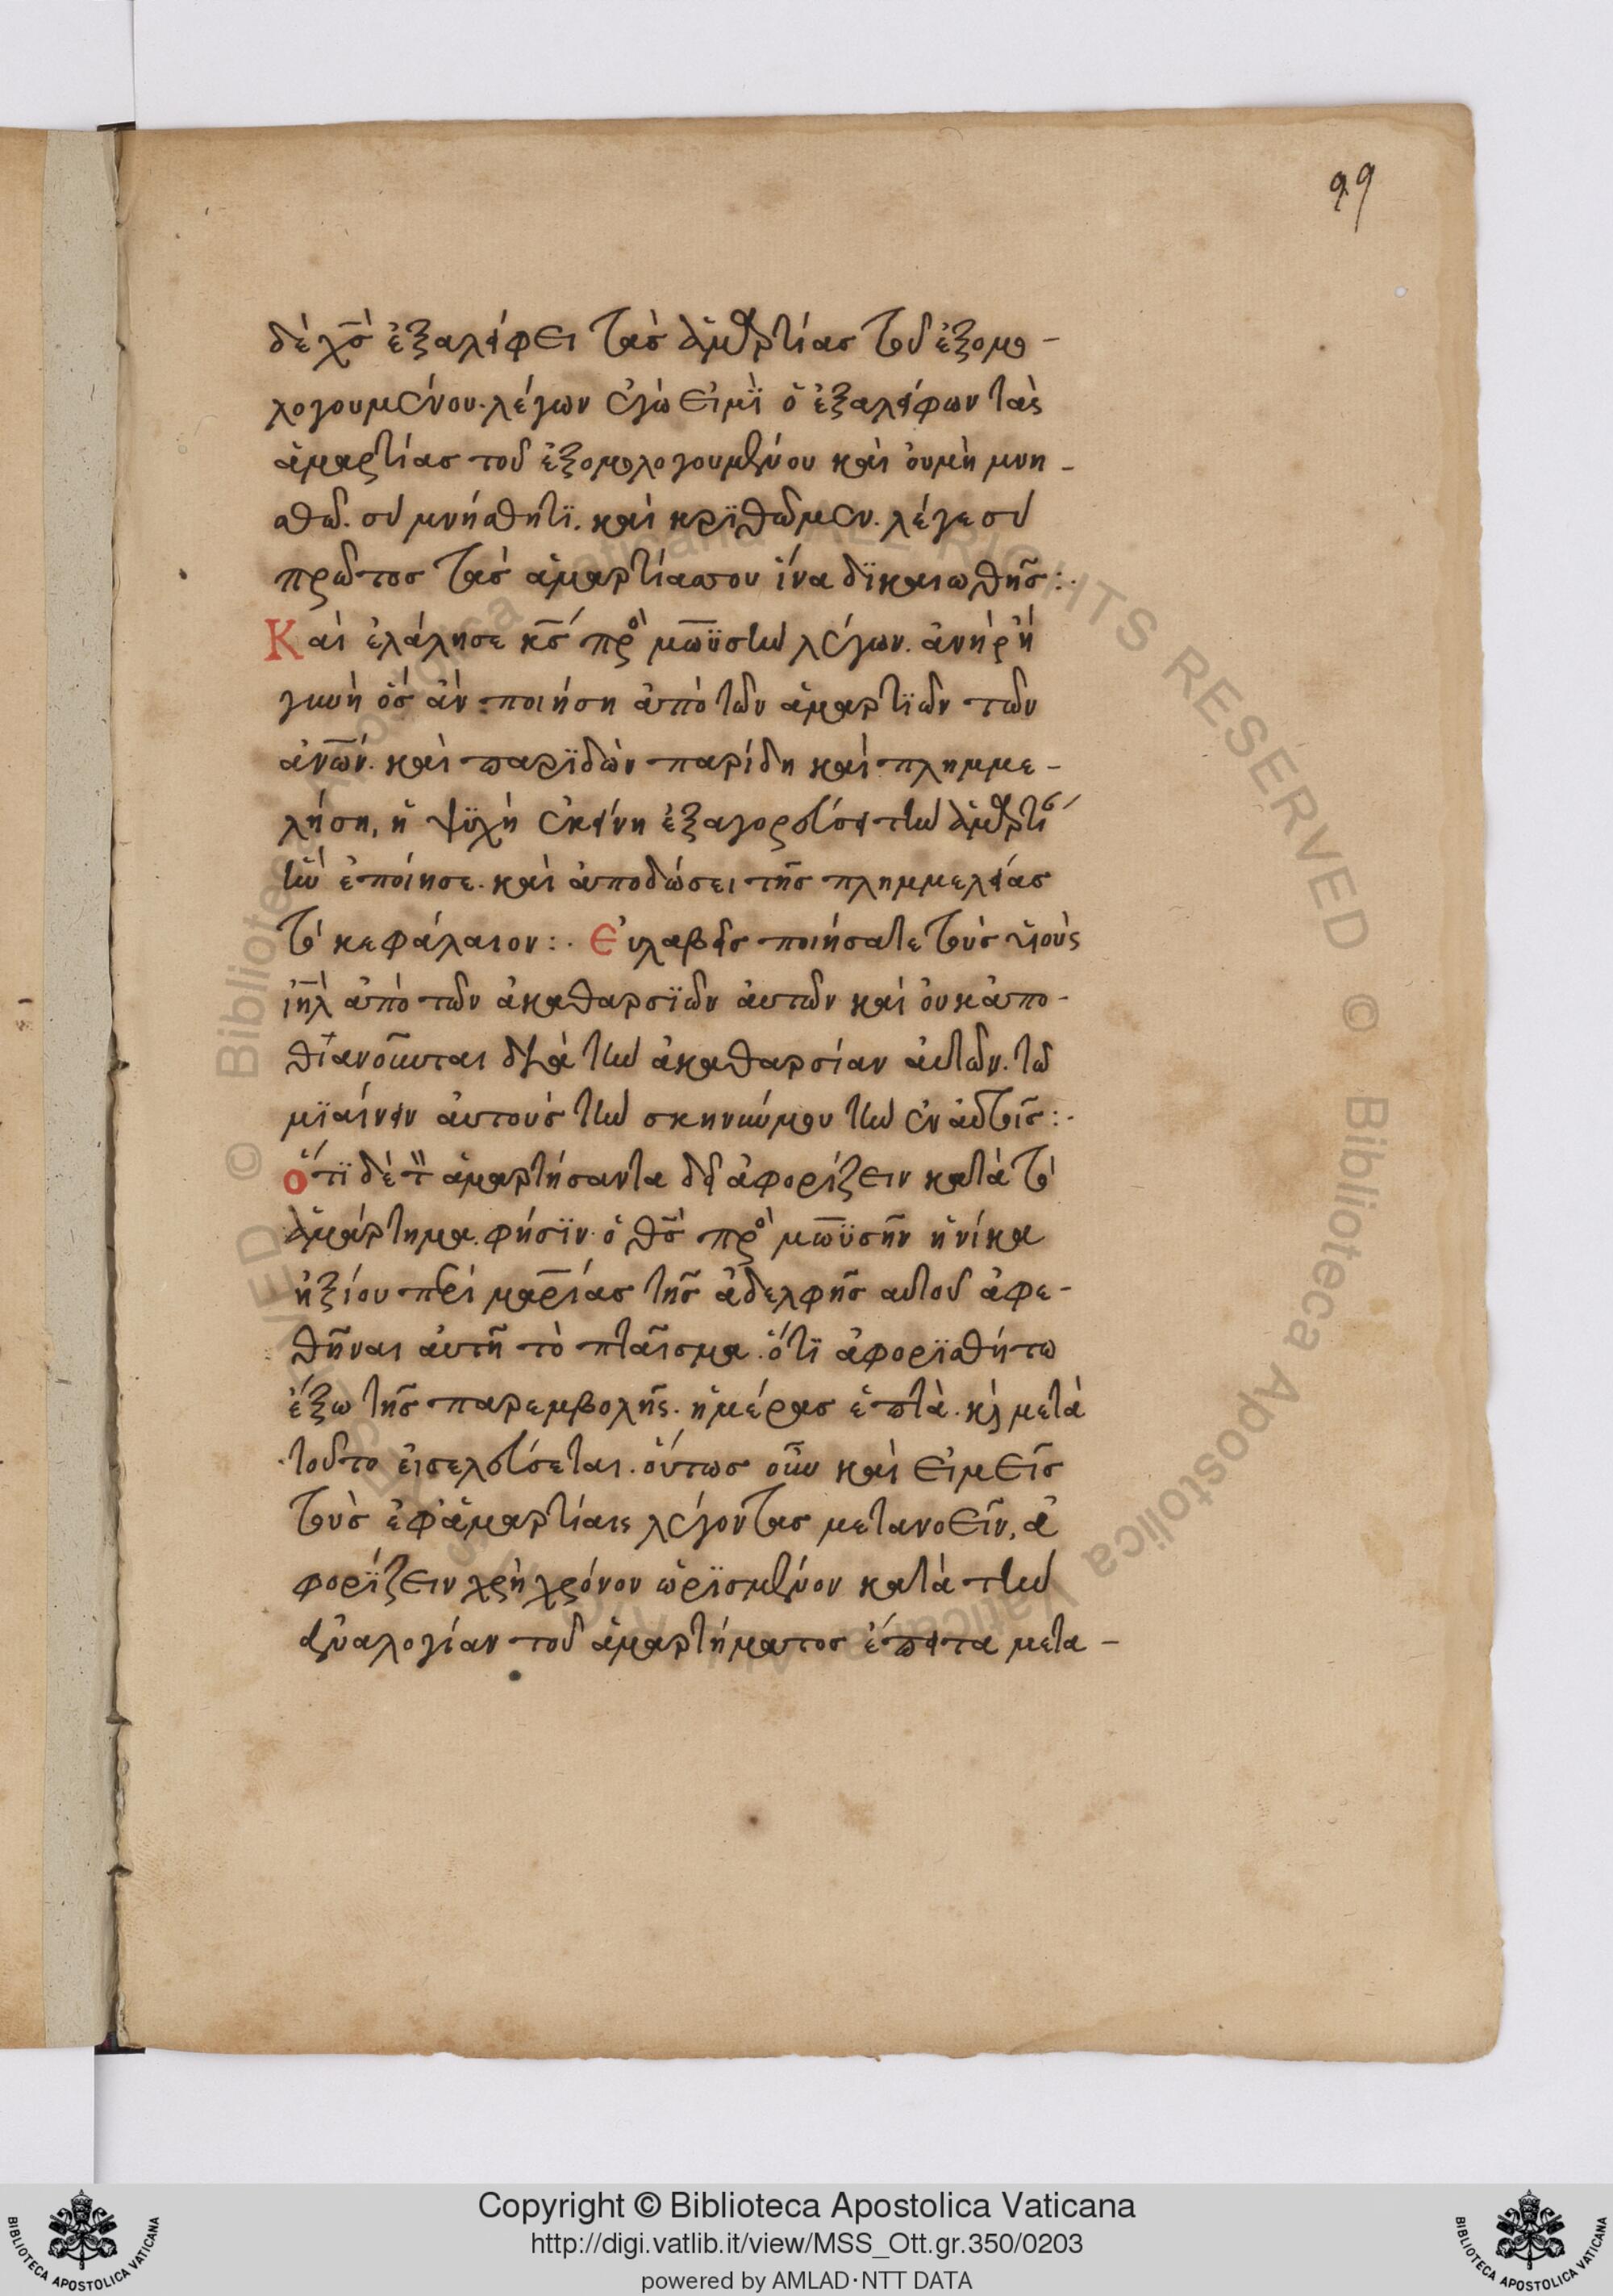 99
δὲ χ̅ς̅ ἐξαλείφει τὰς ἁμαρτίας τοῦ ἐξομο-
λογουμένου. λέγων ἐγὼ εἰμῒ ὁ ἐξαλείφων τὰς
ἁμαρτίας τοῦ ἐξομολογουμένου καὶ ὀυμὴ μνη-
σθῶ. σὺ μνήσθητϊ. καὶ κρϊθῶμεν. λέγε σὺ
πρῶτος τὰς ἁμαρτίασσου ἵνα δϊκαιωθῆς:·
Καὶ ἐλάλησε κ̅ς̅ πρὸς μω̅ϋσὴν λέγων. ἀνὴρ ἢ
γυνὴ ὃς ἀν ποιήση ἀπὸ τῶν ἁμαρτϊῶν τῶν
ἀν̅ω̅ν. καὶ παρϊδὼν παρίδη καὶ πλημμε-
λήση, ἡ ψϋχὴ ἐκείνη ἐξαγορεύσει τὴν ἁμαρτί
ἣν ἐποίησε. καὶ ἀποδώσει τῆς πλημμελείας
τὸ κεφάλαιον:· Εὐλαβεῖς ποιήσατε τοὺς υἱοὺς
ι̅η̅λ̅ ἀπὸ τῶν ἀκαθαρσϊῶν ἀυτῶν καὶ ὀυκ ἀπο-
θανοῦνται δϊὰ τὴν ἀκαθαρσίαν ἀυτῶν. τῶ
μϊαίνειν ἀυτοὺς τὴν σκηνήνμου τὴν ἐν ἀυτοῖς:·
ὅτϊ δὲ τ̅ ἁμαρτήσαντα δεῖ ἀφορίζειν κατὰ τὸ
ἁμάρτημα. φήσϊν ὁ θ̅ς̅ πρὸς μω̅ϋσῆν ἡνίκα
ἠξίου περὶ μαρίας τῆς ἀδελφῆς αυτοῦ ἀφε-
θῆναι ἀυτῆ τὸ πταῖσμα. ὅτϊ ἀφορϊσθήτω
ἔξω τῆς παρεμβολῆς. ἡμέρας ἑπτὰ. κὶ μετὰ
τοῦτο ἐισελεύσεται. ὅυτως οὖν καὶ εἰμεῖς
τοὺς ἐφἁμαρτίαις λέγοντας μετανοεῖν, ἀ
φορΐζειν χρὴ χρόνον ὡρϊσμένον κατὰ τὴν
ἀναλογίαν τοῦ ἁμαρτήματος ἔπειτα μετα-
Copyright © Biblioteca Apostolica Vaticana
http://digi.vatlib.it/view/MSS_Ott.gr.350/0203
powered by AMLAD·NTT DATA
BIBLIOTECA APOSTOLICA VATICANA
BIBLIOTECA APOSTOLICA VATICANA